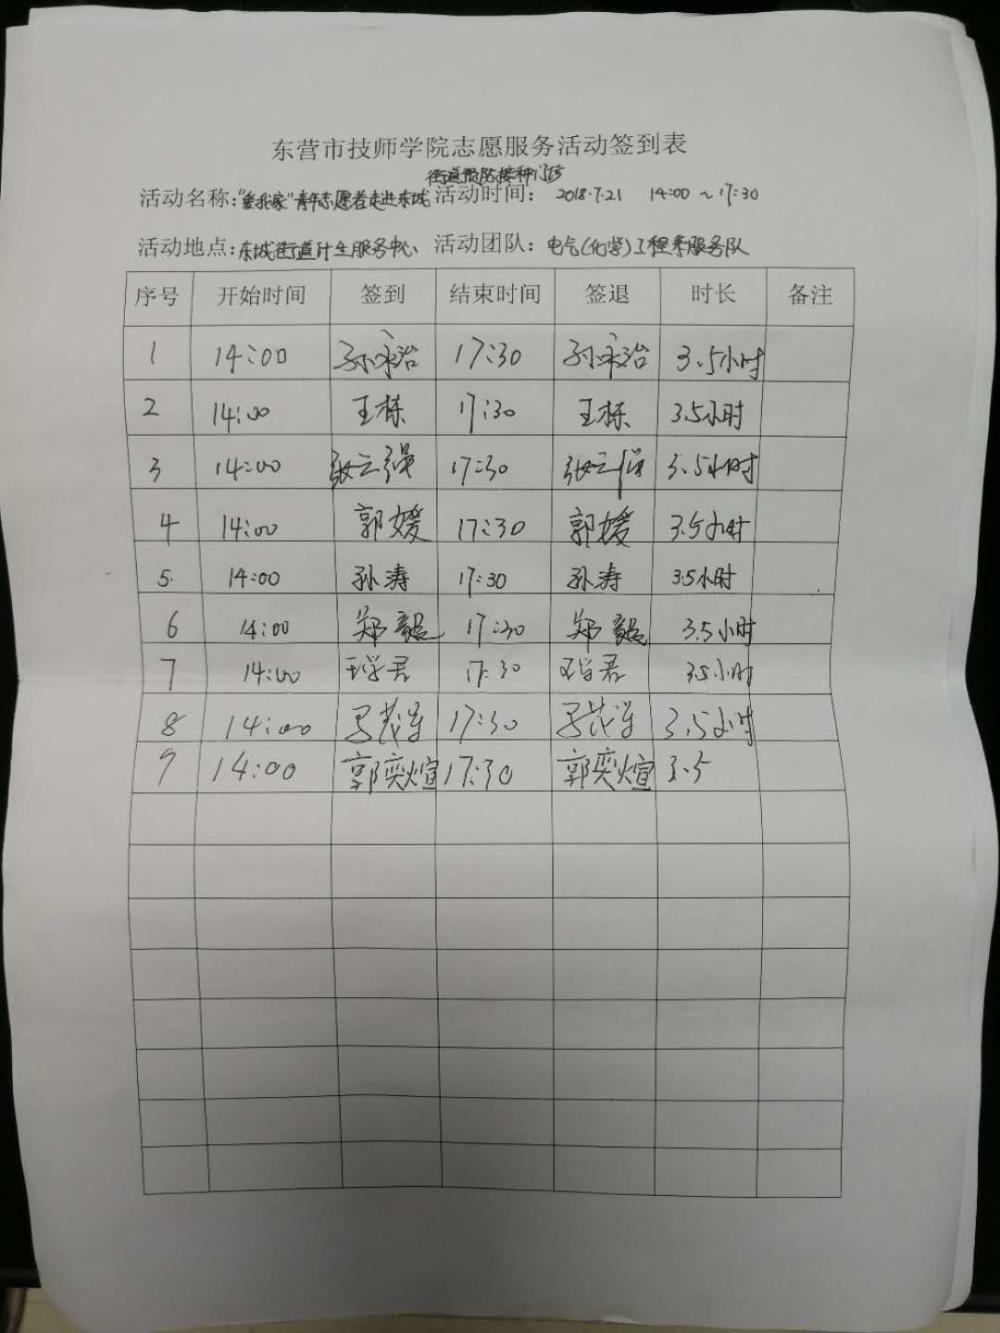 东营市技师学院志愿服务活动签到表
街道预防接种门诊
活动名称:"爱我家"青年志愿者走进东城 活动时间: 2018.7.21 14:00 ~ 17:30
活动地点:东城街道计生服务中心 活动团队: 电气(化学)工程系服务队
序号 开始时间 签到 结束时间 签退 时长 备注
1 14:00 孙永治 17:30 孙永治 3.5小时
2 14:00 王栋 17:30 王栋 3.5小时
3 14:00 张云强 17:30 张云强 3.5小时
4 14:00 郭媛 17:30 郭媛 3.5小时
5. 14:00 孙涛 17:30 孙涛 3.5小时
6 14:00 郑 17:30 郑 3.5小时
7 14:00 17:30 3.5小时
8 14:00 17:30 3.5小时
9 14:00 郭奕煊 17:30 郭奕煊 3.5